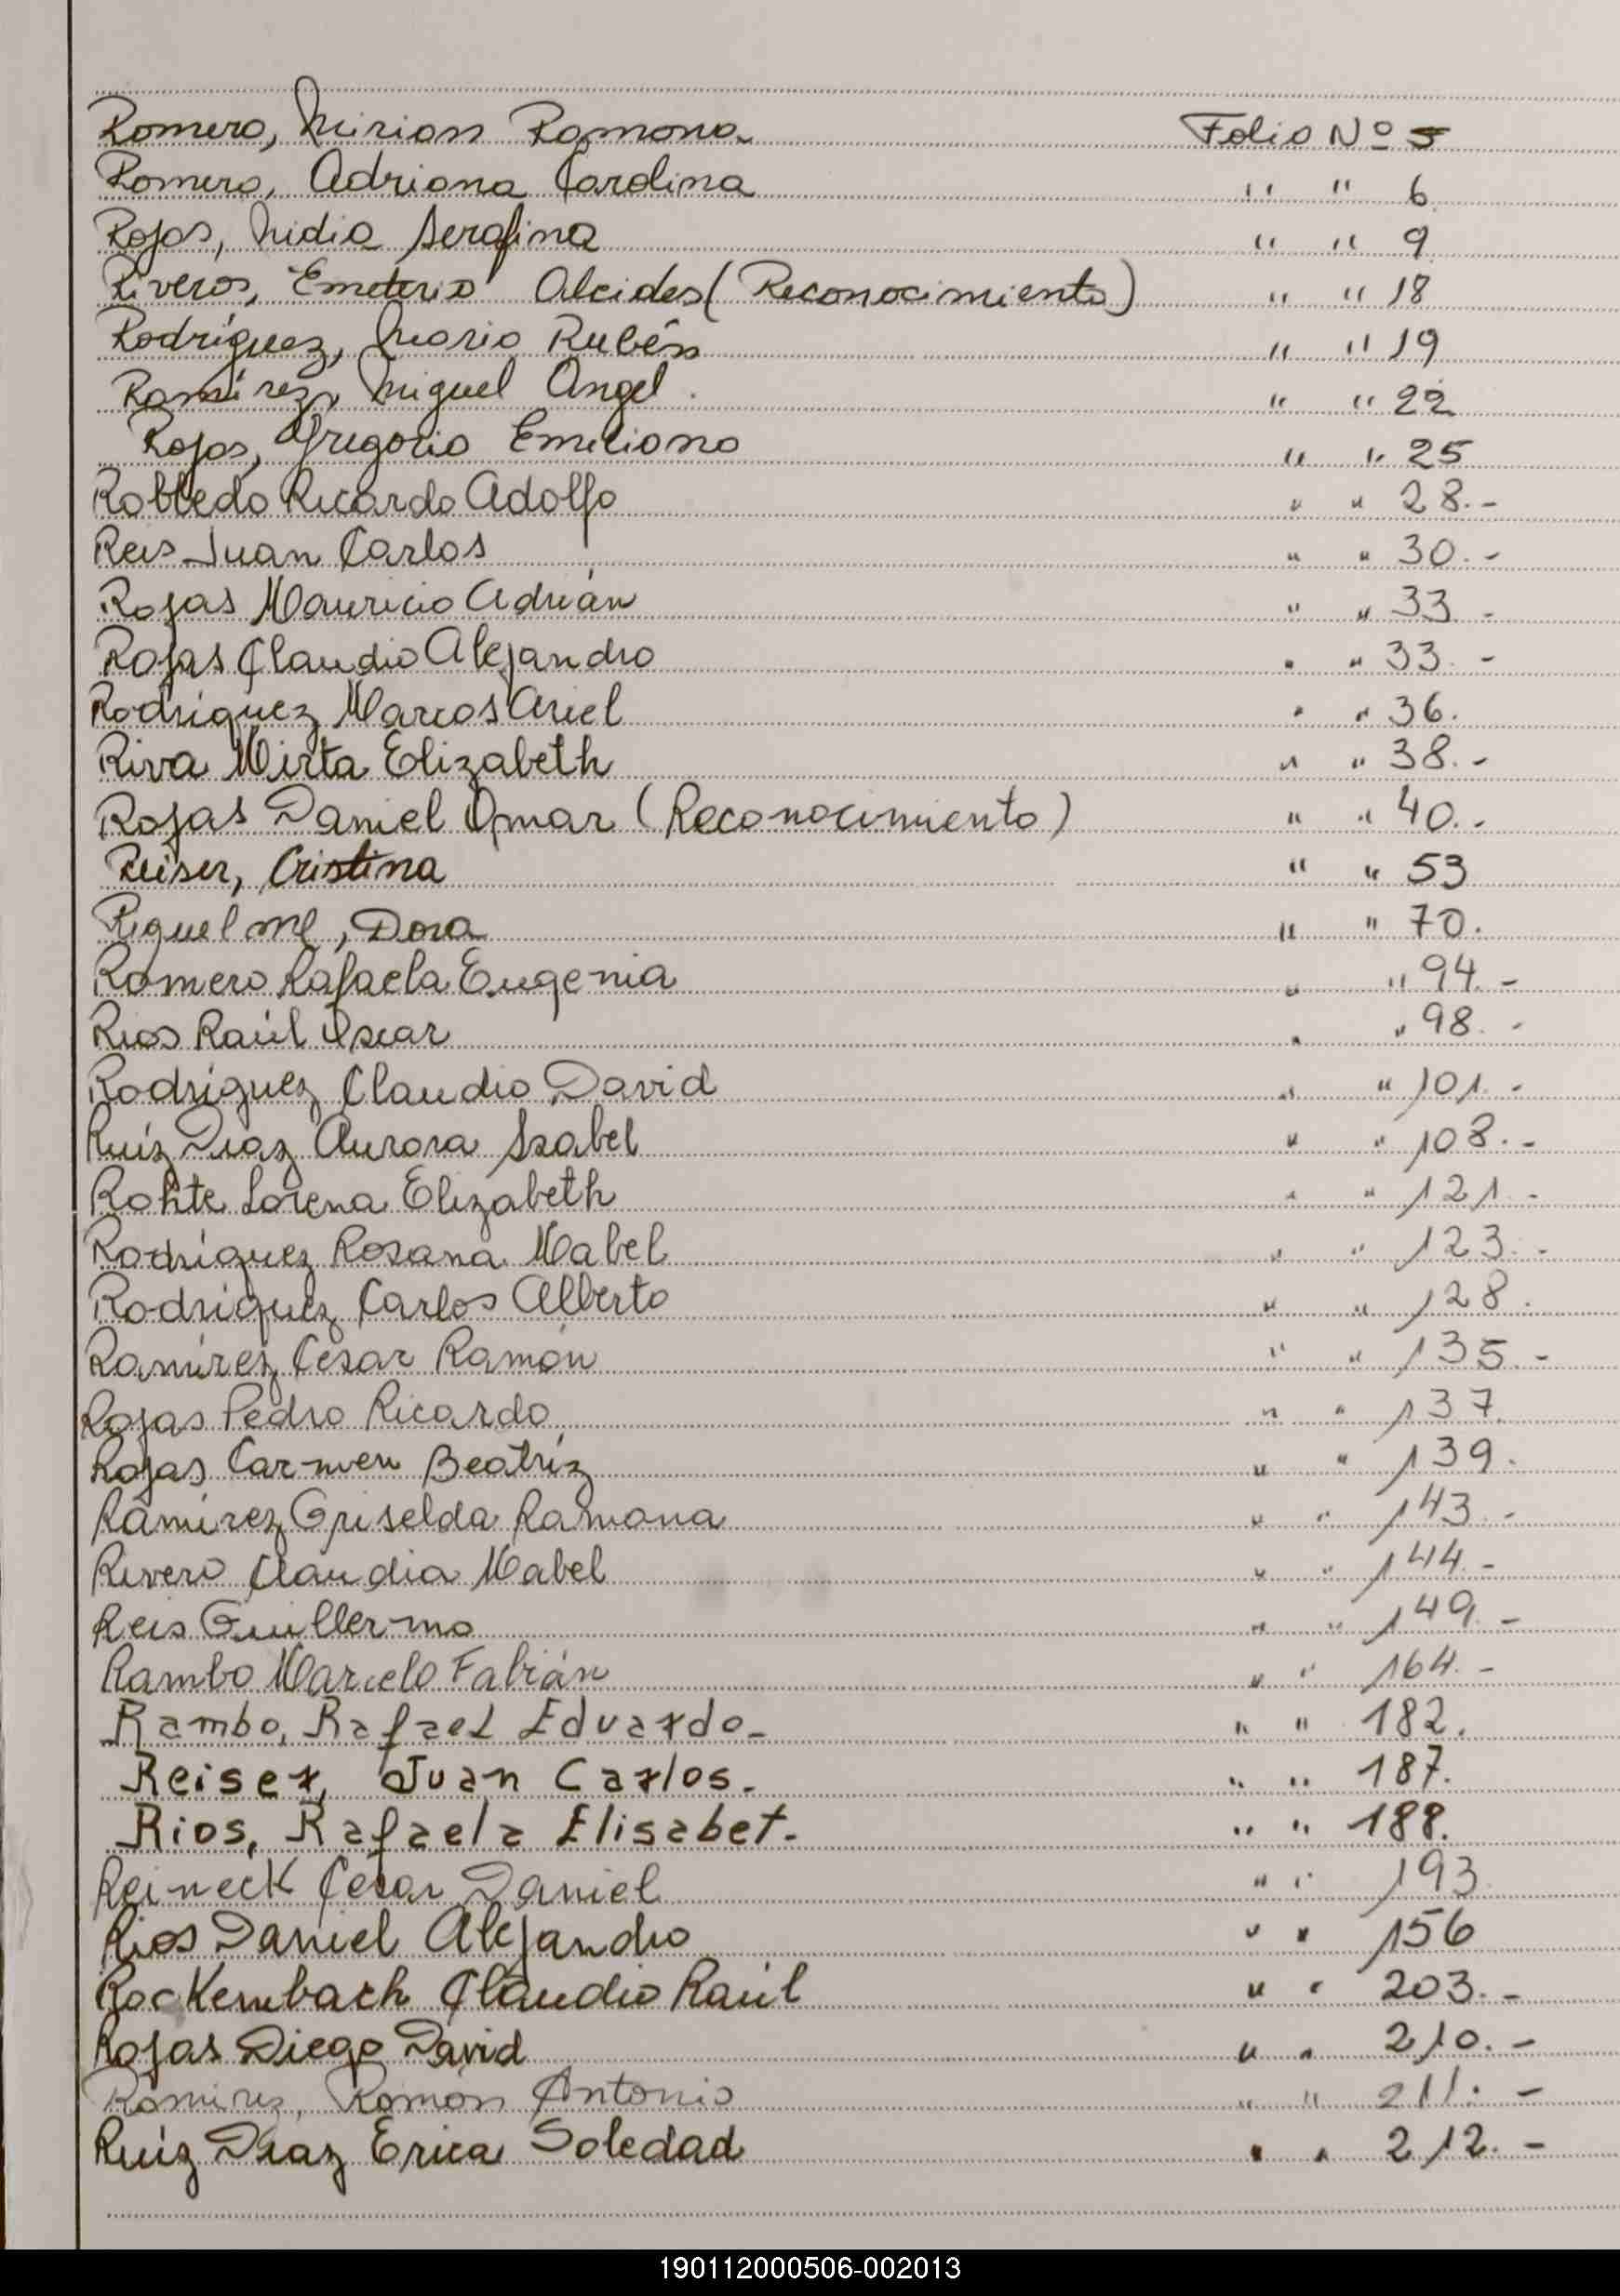 Romero, Mirian Ramona Folio Nº 5
Romero, Adriana Carolina " " 6
Rojas, Nidia Serafina " " 9
Riveros, Emeterio Alcides (Reconocimiento) " " 18
Rodríguez, Mario Rubén " " 19
Ramírez, Miguel Angel. " " 22
Rojas, Gregorio Emiliano " " 25
Robledo Ricardo Adolfo " " 28.-
Reis Juan Carlos " " 30.-
Rojas Mauricio Adrián " " 33 -
Rojas Claudio Alejandro " " 33.-
Rodríguez Marcos Ariel " " 36.
Riva Mirta Elizabeth " " 38.-
Rojas Daniel Omar (Reconocimiento) " " 40.-
Reiser, Cristina " " 53
Riquelme, Dora " " 70.
Romero Rafaela Eugenia " " 94.-
Rios Raúl Oscar " " 98.-
Rodríguez Claudio David " " 101.-
Ruíz Diaz Aurora Isabel " " 108.-
Rohte Lorena Elizabeth " " 121.-
Rodríguez Rosana Mabel " " 123.-
Rodríguez Carlos Alberto " " 128.
Ramírez César Ramón " " 135.-
Rojas Pedro Ricardo " " 137.
Rojas Carmen Beatríz " " 139.
Ramírez Griselda Ramona " " 143.-
Rivero Claudia Mabel " " 144.-
Reis Guillermo " " 149.-
Rambo Marcelo Fabián " " 164.-
Rambo, Rafael Eduardo.- " " 182.
Reiser, Juan Carlos.- " " 187.
Rios, Rafaela Elisabet.- " " 188.
Reineck César Daniel " " 193
Rios Daniel Alejandro " " 156
Rockembach Claudio Raúl " " 203.-
Rojas Diego David " " 210.-
Ramirez, Ramón Antonio " " 211.-
Ruíz Diaz Erica Soledad " " 212.-
190112000506-002013